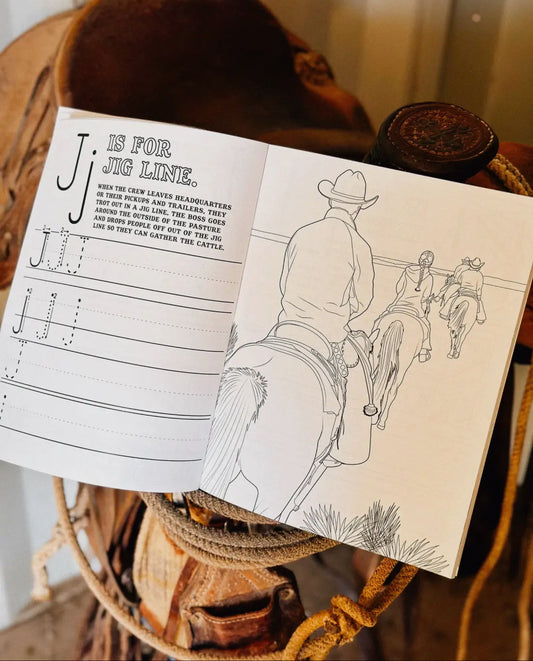 Jj
IS FOR
JIG LINE.
WHEN THE CREW LEAVES HEADQUARTERS
OR THEIR PICKUPS AND TRAILERS, THEY
TROT OUT IN A JIG LINE. THE BOSS GOES
AROUND THE OUTSIDE OF THE PASTURE
AND DROPS PEOPLE OFF OUT OF THE JIG
LINE SO THEY CAN GATHER THE CATTLE.
J J J
j j j
J
j